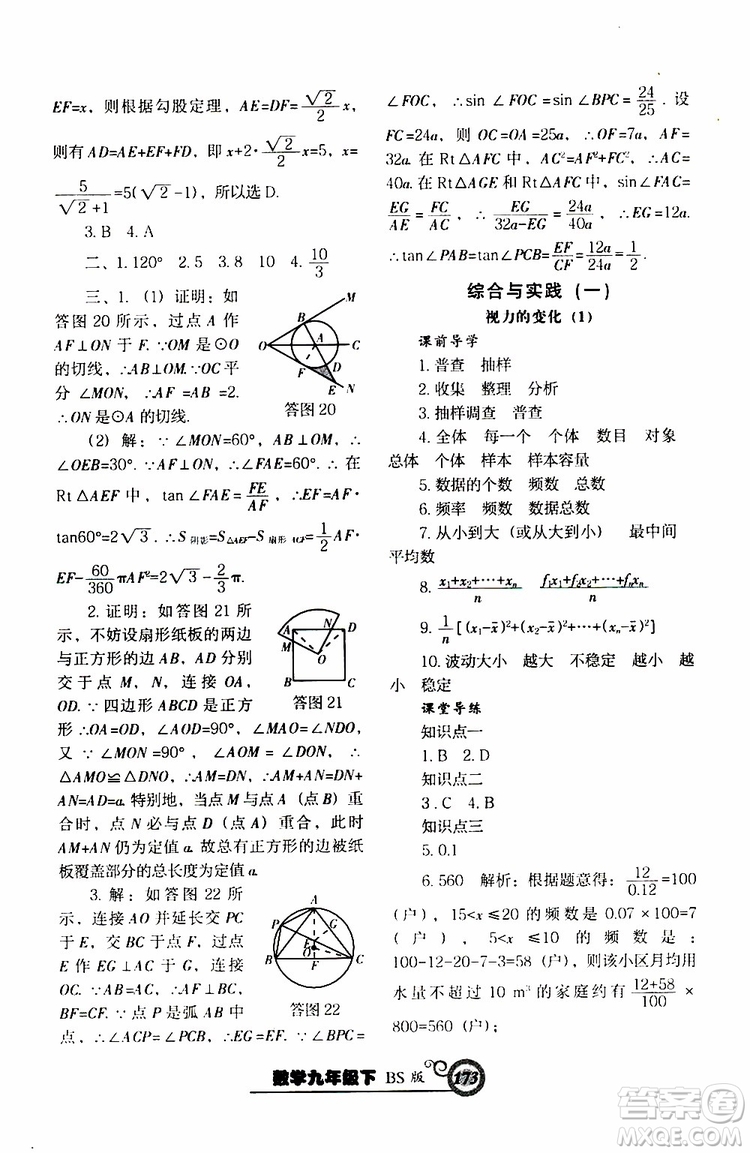 EF=x，则根据勾股定理，AE=DF=√2/2 x，
则有 AD=AE+EF+FD，即 x+2·√2/2 x=5，x=
5/(√2+1)=5(√2-1)，所以选 D.
3. B 4. A
二、1. 120° 2. 5 3. 8 10 4. 10/3
三、1.（1）证明：如
答图 20 所示，过点 A 作
AF⊥ON 于 F. ∵OM 是⊙O
的切线，∴AB⊥OM. ∵OC平
分 ∠MON，∴AF =AB=2.
∴ON 是⊙A 的切线.
M
B
O
A
C
F
D
E
N
答图 20
（2）解：∵∠MON=60°，AB⊥OM，∴
∠OEB=30°. ∵AF⊥ON，∴∠FAE=60°. ∴ 在
Rt△AEF 中，tan ∠FAE=FE/AF，∴EF=AF·
tan60°=2√3. ∴S阴影=S△AEF-S扇形=1/2 AF·
EF-60/360 πAF²=2√3-2/3 π.
2. 证明：如答图 21 所
示，不妨设扇形纸板的两边
与正方形的边 AB，AD 分别
交于点 M，N，连接 OA，
OD. ∵ 四边形 ABCD 是正方
形∴OA=OD，∠AOD=90°，∠MAO=∠NDO，
又 ∵ ∠MON =90°，∠AOM = ∠DON，∴
△AMO≌△DNO，∴AM=DN，∴AM+AN=DN+
AN=AD=a. 特别地，当点 M 与点 A（点 B）重
合时，点 N 必与点 D（点 A）重合，此时
AM+AN 仍为定值 a. 故总有正方形的边被纸
板覆盖部分的总长度为定值 a.
A
N
D
M
O
B
C
答图 21
3. 解：如答图 22 所
示，连接 AO 并延长交 PC
于 E，交 BC 于点 F，过点
E 作 EG⊥AC 于 G，连接
OC. ∵AB =AC，∴AF⊥BC，
BF=CF. ∵点 P 是弧 AB 中
点，∴∠ACP=∠PCB，∴EG=EF. ∵∠BPC=
A
P
G
E
O
B
F
C
答图 22
∠FOC，∴sin ∠FOC =sin ∠BPC=24/25. 设
FC=24a，则 OC=OA =25a，∴OF=7a，AF=
32a. 在 Rt△AFC 中，AC²=AF²+FC²，∴AC=
40a. 在 Rt△AGE 和 Rt△AFC 中，sin∠FAC=
EG/AE = FC/AC，∴ EG/(32a-EG) = 24a/40a，∴EG=12a.
∴tan ∠PAB=tan∠PCB=EF/CF=12a/24a=1/2.
综合与实践（一）
视力的变化（1）
课前导学
1. 普查 抽样
2. 收集 整理 分析
3. 抽样调查 普查
4. 全体 每一个 个体 数目 对象
总体 个体 样本 样本容量
5. 数据的个数 频数 总数
6. 频率 频数 数据总数
7. 从小到大（或从大到小） 最中间
平均数
8. (x₁+x₂+…+xₙ)/n (f₁x₁+…+fₙxₙ)/n
9. 1/n[(x₁-x̄)²+(x₂-x̄)²+…+(xₙ-x̄)²]
10. 波动大小 越大 不稳定 越小 越
小 稳定
课堂导练
知识点一
1. B 2. D
知识点二
3. C 4. B
知识点三
5. 0.1
6. 560 解析：根据题意得：12/0.12=100
（户），15<x≤20 的频数是 0.07×100=7
（户），5<x≤10 的频数是：
100-12-20-7-3=58（户），则该小区月均用
水量不超过 10 m³ 的家庭约有(12+58)/100×
800=560（户）；
数学九年级下 BS 版 173
答案圈
MXQE.COM